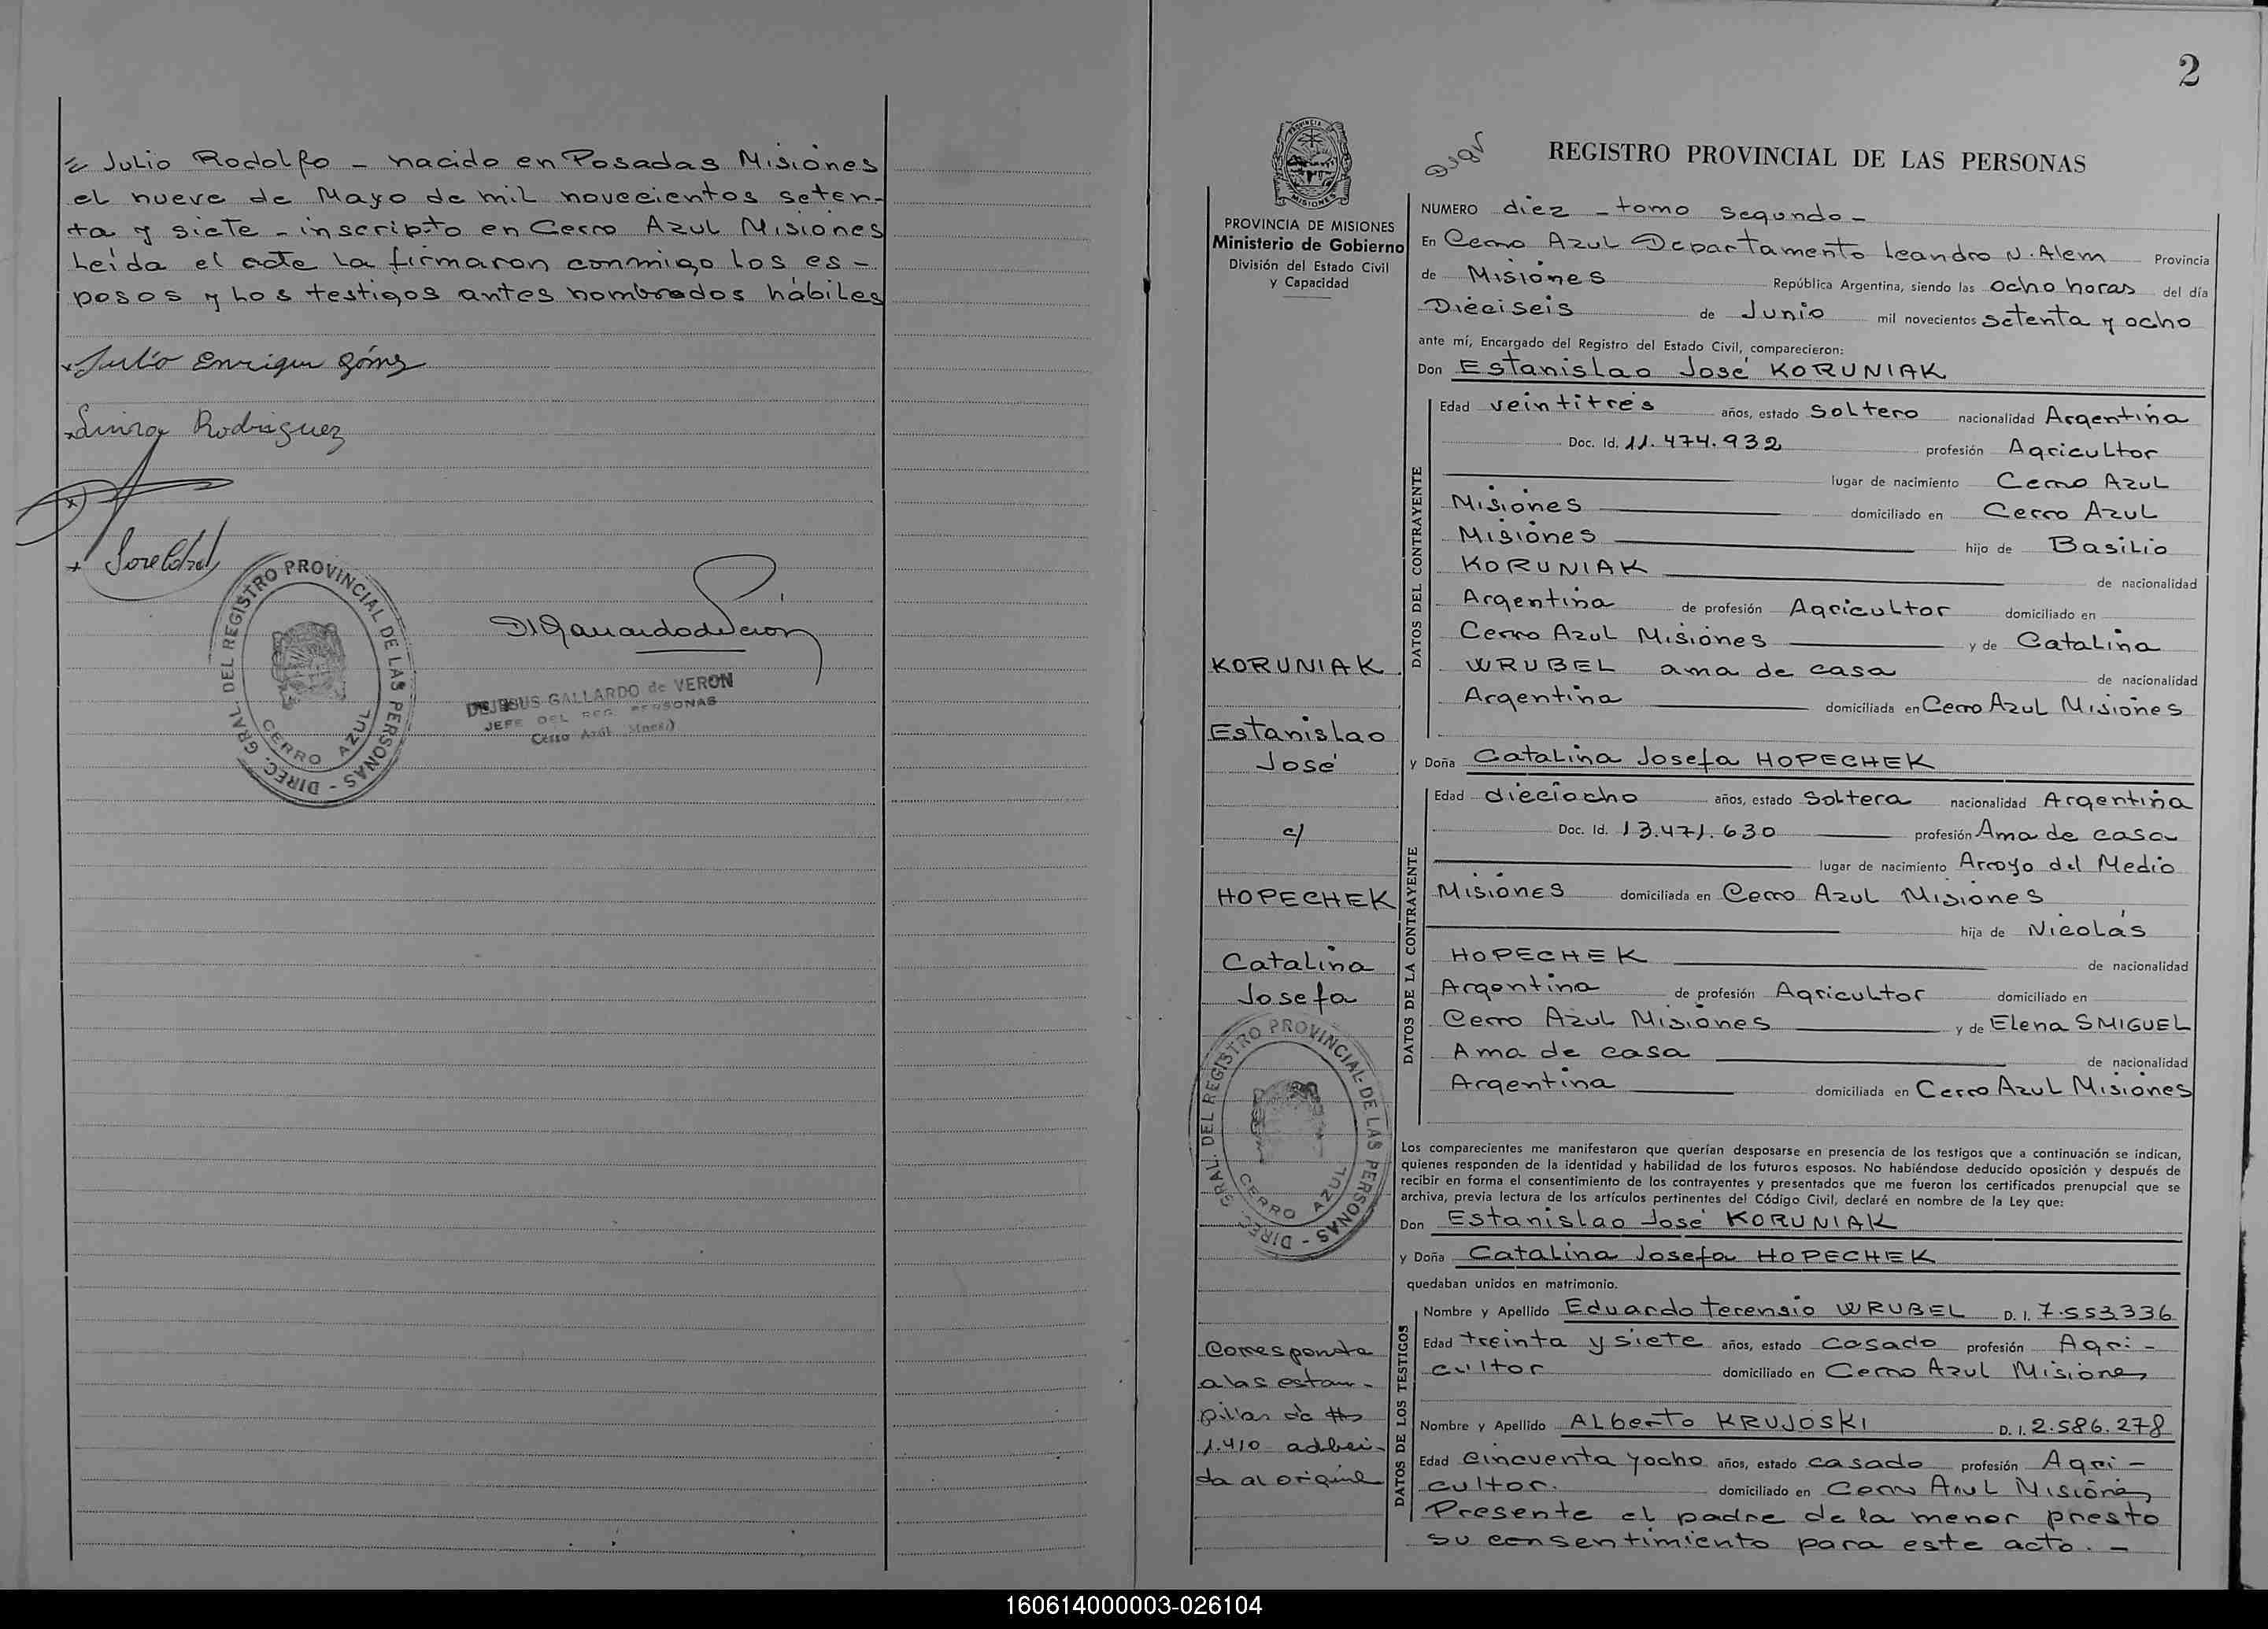 Julio Rodolfo - nacido en Posadas Misiones
el nueve de Mayo de mil novecientos seten-
ta y siete - inscripto en Cerro Azul Misiones
Leída el acta la firmaron conmigo los es-
posos y los testigos antes nombrados hábiles
Julio Enrique Gómez
Rodriguez
DIREC. GRAL. DEL REGISTRO PROVINCIAL DE LAS PERSONAS
CERRO AZUL
DEJESUS GALLARDO de VERON
JEFE DEL REG. PERSONAS
Cerro Azul
2
PROVINCIA DE MISIONES
Ministerio de Gobierno
División del Estado Civil
y Capacidad
KORUNIAK
Estanislao
José
c/
HOPECHEK
Catalina
Josefa
DIREC. GRAL. DEL REGISTRO PROVINCIAL DE LAS PERSONAS
CERRO AZUL
Corresponde
a las estam-
pillas de
1.410 adheri-
da al original
REGISTRO PROVINCIAL DE LAS PERSONAS
NUMERO diez - tomo segundo -
En Cerro Azul Departamento Leandro N. Alem Provincia
de Misiones República Argentina, siendo las ocho horas del día
Dieciseis de Junio mil novecientos setenta y ocho
ante mí, Encargado del Registro del Estado Civil, comparecieron:
Don Estanislao José KORUNIAK
DATOS DEL CONTRAYENTE
Edad veintitrés años, estado soltero nacionalidad Argentina
Doc. Id. 11.474.932 profesión Agricultor
lugar de nacimiento Cerro Azul
Misiones domiciliado en Cerro Azul
Misiones hijo de Basilio
KORUNIAK de nacionalidad
Argentina de profesión Agricultor domiciliado en
Cerro Azul Misiones y de Catalina
WRUBEL ama de casa de nacionalidad
Argentina domiciliada en Cerro Azul Misiones
y Doña Catalina Josefa HOPECHEK
DATOS DE LA CONTRAYENTE
Edad dieciocho años, estado soltera nacionalidad Argentina
Doc. Id. 13.471.630 profesión Ama de casa
lugar de nacimiento Arroyo del Medio
Misiones domiciliada en Cerro Azul Misiones
hija de Nicolás
HOPECHEK de nacionalidad
Argentina de profesión Agricultor domiciliado en
Cerro Azul Misiones y de Elena SMIGUEL
Ama de casa de nacionalidad
Argentina domiciliada en Cerro Azul Misiones
Los comparecientes me manifestaron que querían desposarse en presencia de los testigos que a continuación se indican,
quienes responden de la identidad y habilidad de los futuros esposos. No habiéndose deducido oposición y después de
recibir en forma el consentimiento de los contrayentes y presentados que me fueron los certificados prenupcial que se
archiva, previa lectura de los artículos pertinentes del Código Civil, declaré en nombre de la Ley que:
Don Estanislao José KORUNIAK
y Doña Catalina Josefa HOPECHEK
quedaban unidos en matrimonio.
DATOS DE LOS TESTIGOS
Nombre y Apellido Eduardo Terensio WRUBEL D. I. 7.553336
Edad treinta y siete años, estado casado profesión Agri-
cultor domiciliado en Cerro Azul Misiones
Nombre y Apellido Alberto KRUJOSKI D. I. 2.586.278
Edad cincuenta y ocho años, estado casado profesión Agri-
cultor. domiciliado en Cerro Azul Misiones
Presente el padre de la menor presto
su consentimiento para este acto. -
160614000003-026104